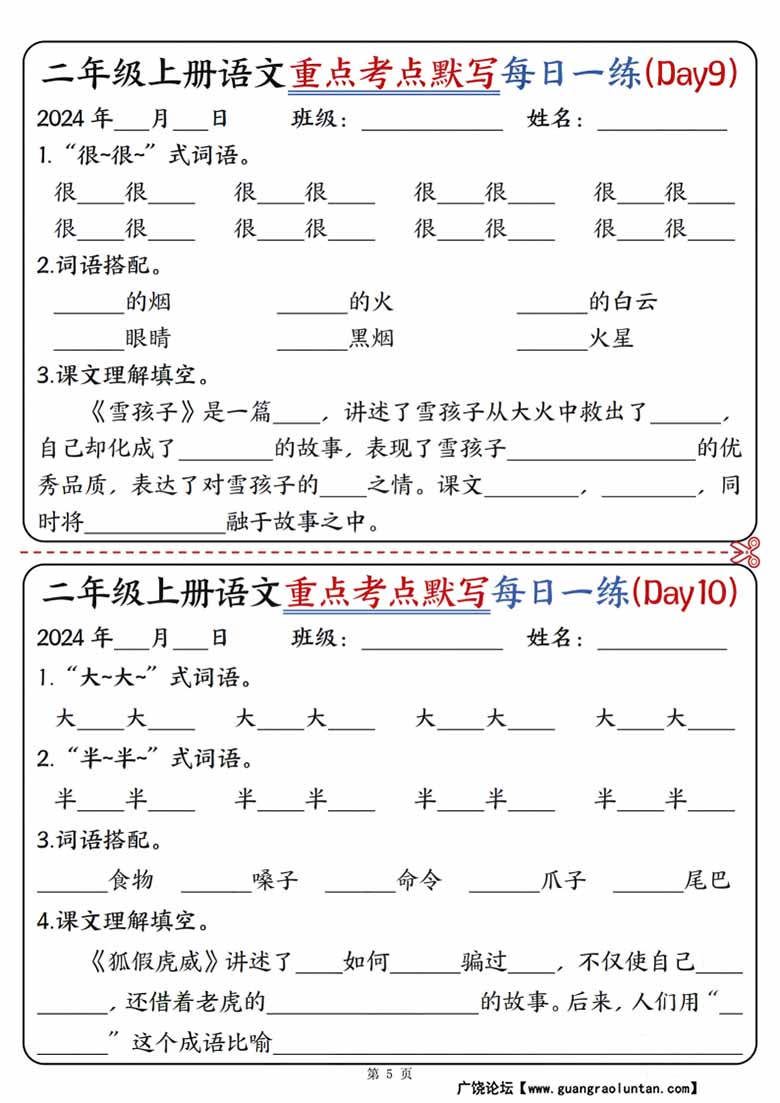 二年级上册语文重点考点默写每日一练(Day9)
2024年___月___日 班级：____________ 姓名：___________
1.“很~很~”式词语。
很____很____ 很____很____ 很____很____ 很____很____
很____很____ 很____很____ 很____很____ 很____很____
2.词语搭配。
______的烟 ______的火 ______的白云
______眼睛 ______黑烟 ______火星
3.课文理解填空。
《雪孩子》是一篇____，讲述了雪孩子从大火中救出了______，
自己却化成了________的故事，表现了雪孩子________________的优
秀品质，表达了对雪孩子的____之情。课文________，________，同
时将____________融于故事之中。
二年级上册语文重点考点默写每日一练(Day10)
2024年___月___日 班级：____________ 姓名：___________
1.“大~大~”式词语。
大____大____ 大____大____ 大____大____ 大____大____
2.“半~半~”式词语。
半____半____ 半____半____ 半____半____ 半____半____
3.词语搭配。
______食物 ______嗓子 ______命令 ______爪子 ______尾巴
4.课文理解填空。
《狐假虎威》讲述了____如何______骗过____，不仅使自己____
______，还借着老虎的__________________的故事。后来，人们用“__
______”这个成语比喻________________________________________
第 5 页
广饶论坛【www.guangraoluntan.com】